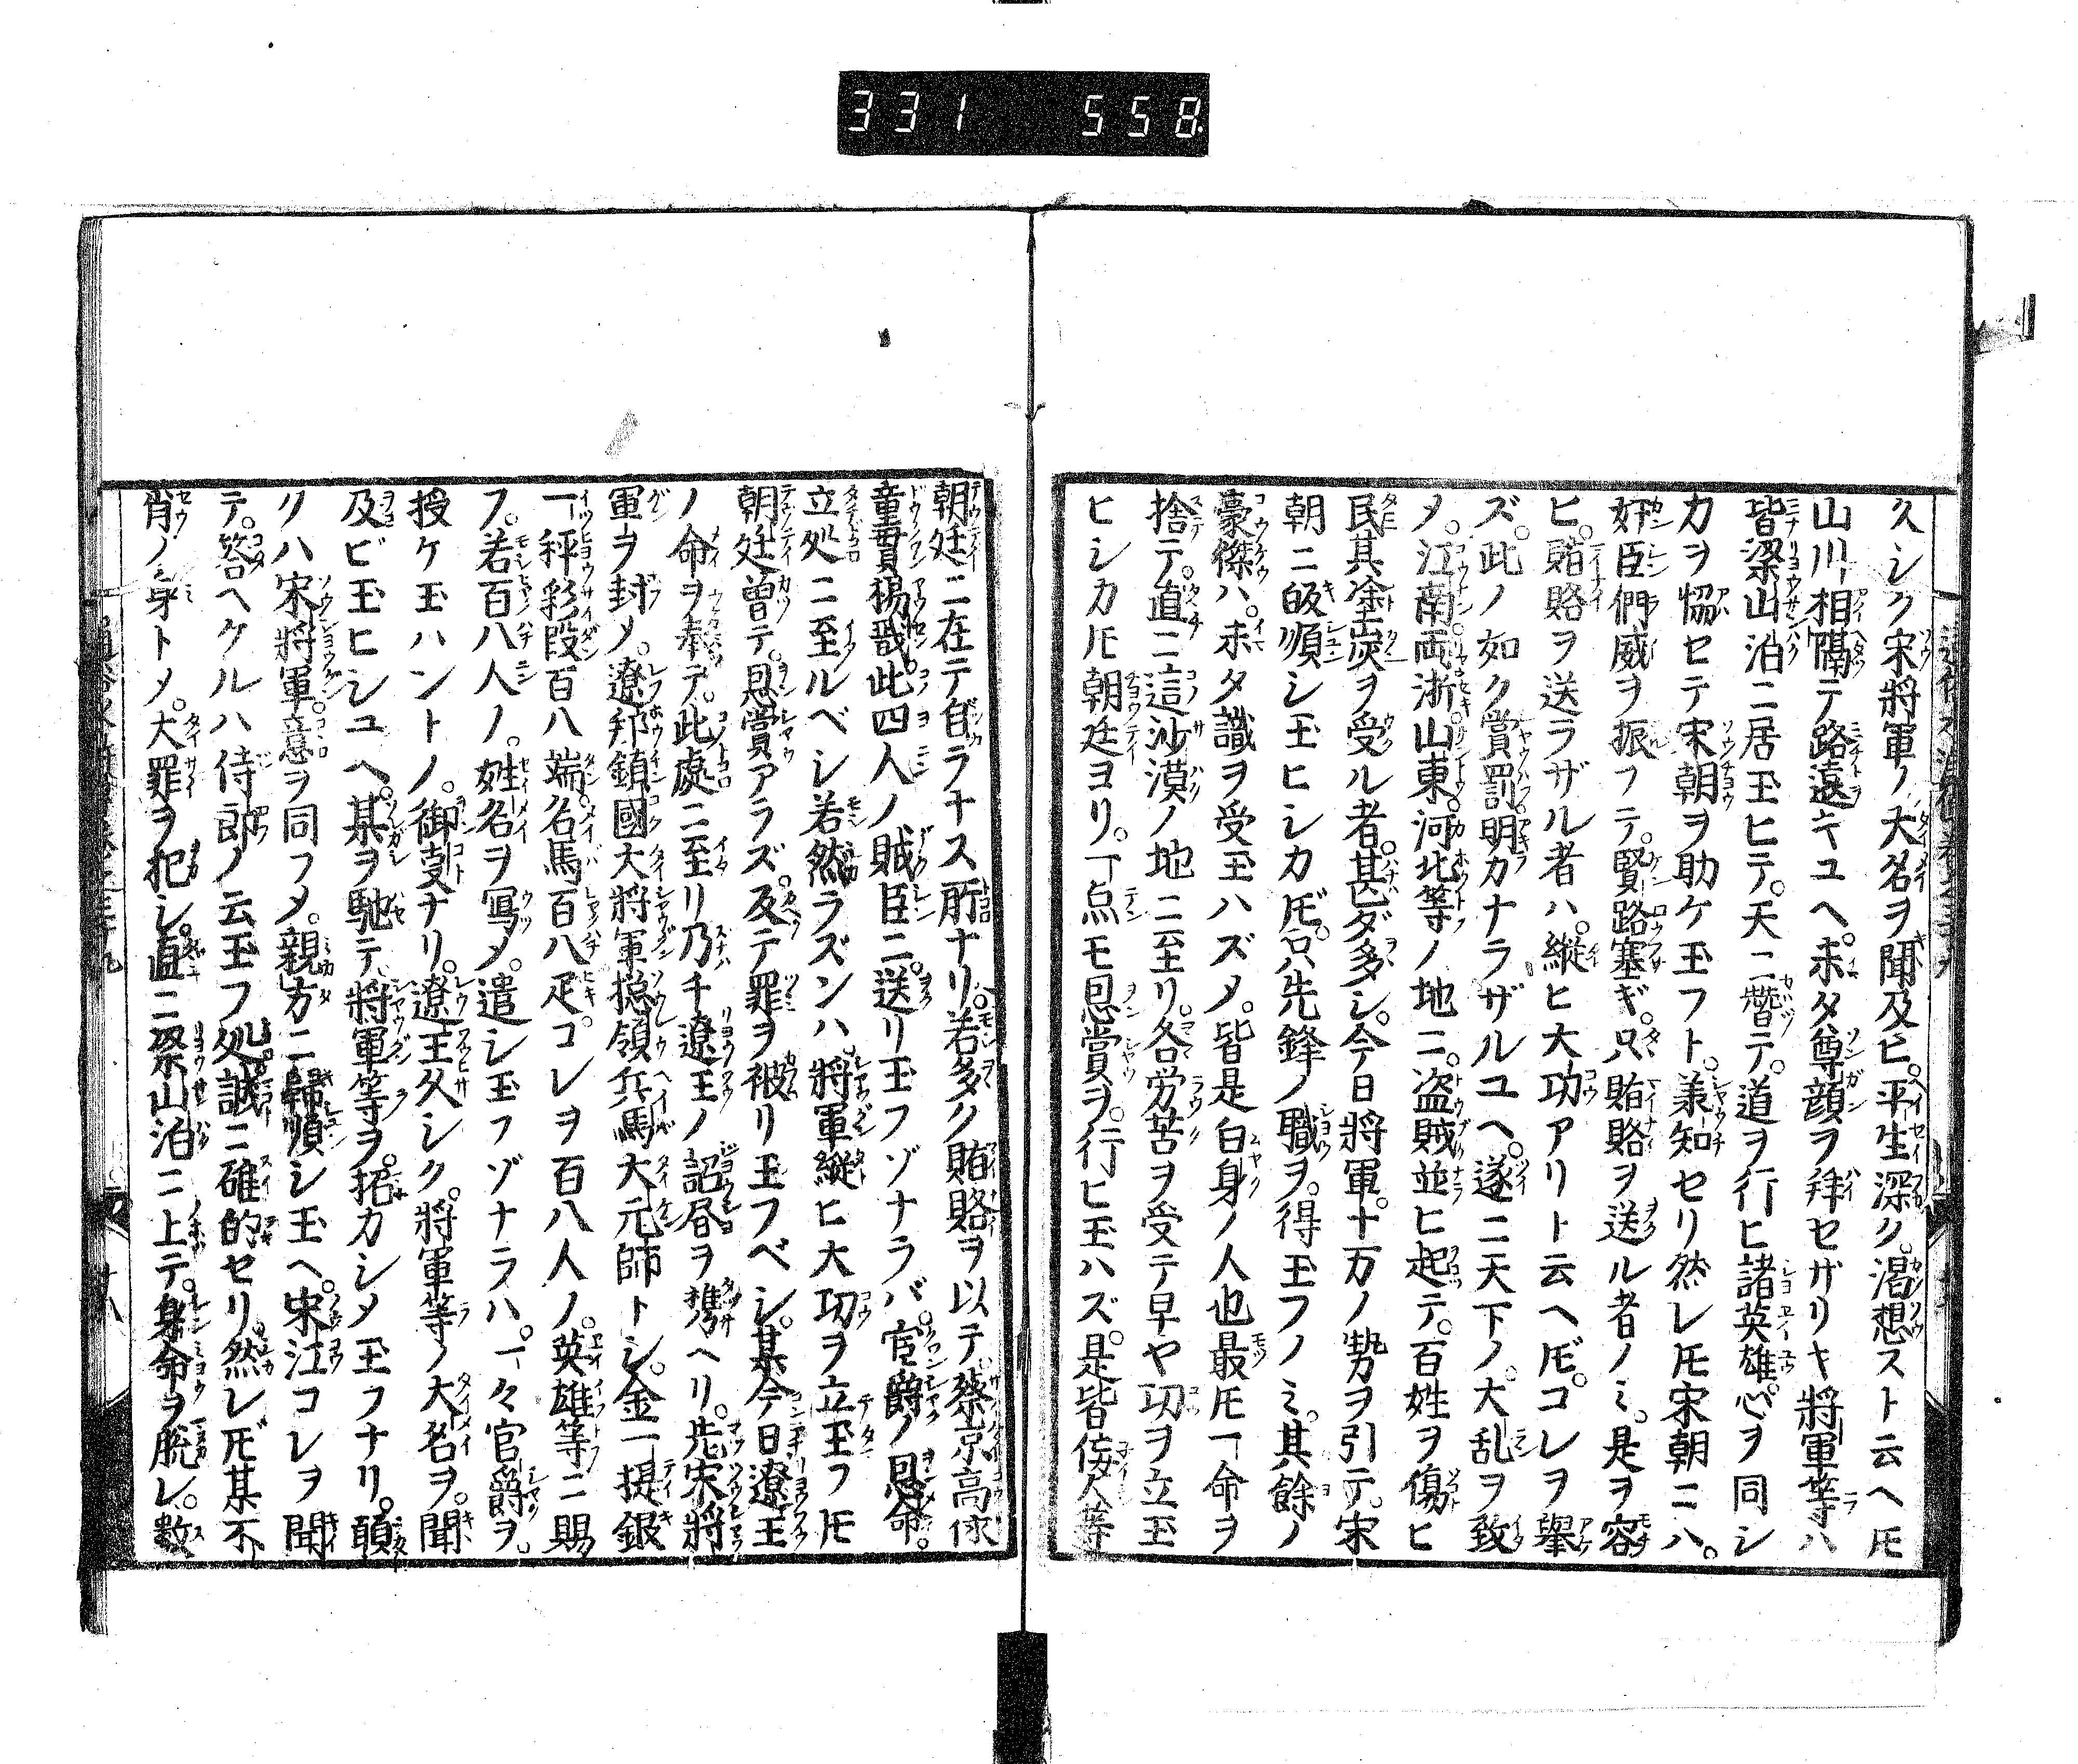 331 558
久シク宋將軍ノ大名ヲ聞及ヒ。平生深ク。渇想スト云ヘ𪜈
山川相隔テ路遠キユヘ。未タ尊顔ヲ拜セザリキ將軍等ハ
皆梁山泊ニ居玉ヒテ。天ニ替テ。道ヲ行ヒ諸英雄。心ヲ同シ
力ヲ恊セテ宋朝ヲ助ケ玉フト。兼知セリ然レ𪜈宋朝ニハ。
奸臣們威ヲ振フテ。賢路塞ギ。只賄賂ヲ送ル者ノミ。是ヲ容
ヒ。賄賂ヲ送ラザル者ハ。縦ヒ大功アリト云ヘ𪜈。コレヲ擧
ズ。此ノ如ク賞罰明カナラザルユヘ。遂ニ天下ノ。大乱ヲ致
メ。江南両浙山東。河北等ノ地ニ。盗賊並ヒ起テ。百姓ヲ傷ヒ
民其塗炭ヲ受ル者。甚ダ多シ。今日將軍。十万ノ勢ヲ引テ。宋
朝ニ皈順シ玉ヒシカ𪜈。只先鋒ノ職ヲ。得玉フノミ。其餘ノ
豪傑ハ。未タ識ヲ受玉ハズメ。皆是白身ノ人也最𪜈一命ヲ
捨テ。直ニ這沙漠ノ地ニ至リ。各労苦ヲ受テ早ヤ功ヲ立玉
ヒシカ𪜈朝廷ヨリ。一点モ恩賞ヲ。行ヒ玉ハズ。是皆侫人等
朝廷ニ在テ自ラナス所ナリ。若多ク賄賂ヲ以テ。蔡京高俅
童貫楊戩。此四人ノ賊臣ニ。送リ玉フゾナラバ。官爵ノ恩命。
立処ニ至ルベシ若然ラズンハ。將軍縦ヒ大功ヲ立玉フ𪜈
朝廷曽テ。恩賞アラズ。反テ罪ヲ被リ玉フベシ。某今日遼王
ノ命ヲ奉テ。此處ニ至リ乃チ遼王ノ詔書ヲ携ヘリ。先宋將
軍ヲ封メ。遼邦鎮國大將軍揔領兵馬大元師トシ。金一提銀
一秤彩段百八端。名馬百八疋。コレヲ百八人ノ。英雄等ニ賜
フ。若百八人ノ。姓名ヲ写メ。遣シ玉フゾナラハ。一々官爵ヲ。
授ケ玉ハントノ。御㕝ナリ。遼王久シク。將軍等ノ大名ヲ。聞
及ビ玉ヒシユヘ。某ヲ馳テ。將軍等ヲ。招カシメ玉フナリ。願
クハ宋將軍。意ヲ同フメ。親方ニ歸順シ玉ヘ。宋江コレヲ聞
テ。答ヘケルハ侍郎ノ云玉フ処。誠ニ碓的セリ。然レ𪜈某不
肖ノ身トメ。大罪ヲ犯シ。直ニ梁山泊ニ上テ。身命ヲ脱レ。数